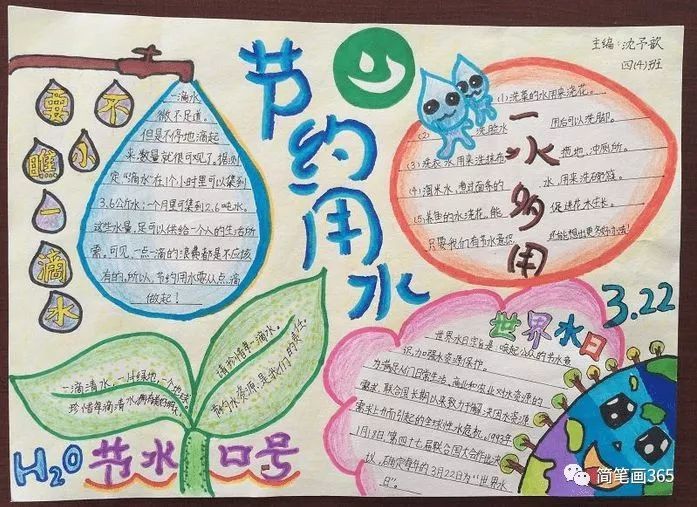 主编:沈予歆
四(4)班
不要小瞧一滴水
节约用水
一滴水
微不足道。
但是不停地滴起
来,数量就很可观了。据测
定"滴水"在1个小时里可以集到
3.6公斤水;一个月里可集到2.6吨水。
这些水量,足可以供给一个人的生活所
需。可见,一点一滴的浪费都是不应该
有的。所以,节约用水要从点滴
做起!
一水多用
(1)洗菜的水用来浇花。
(2) 洗脸水 用后可以洗脚。
(3)洗衣水用来洗拖布 拖地,冲厕所。
(4)淘米水,煮过面条的 水,用来洗碗筷。
(5)养鱼的水浇花,能 促进花木生长。
只要我们有节水意识 还能想出更多好办法!
3.22
世界水日
世界水日宗旨是:唤起公众的节水意
识,加强水资源保护。
为满足人们日常生活、商业和农业对水资源的
需求,联合国长期以来致力于解决因水资源
需求上升而引起的全球性水危机。1993年
1月18日,第四十七届联合国大会作出决
议,确定每年的3月22日为"世界水
日"。
一滴清水,一片绿地,一个地球
珍惜每滴清水
请珍惜每一滴水。
节约水资源,是我们的责任。
H2O 节水口号
简笔画365